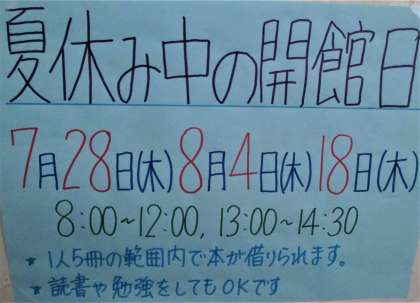 夏休み中の開館日
7月28日(木)8月4日(木)18日(木)
8:00~12:00, 13:00~14:30
★ 1人5冊の範囲内で本が借りられます。
★ 読書や勉強をしてもOKです